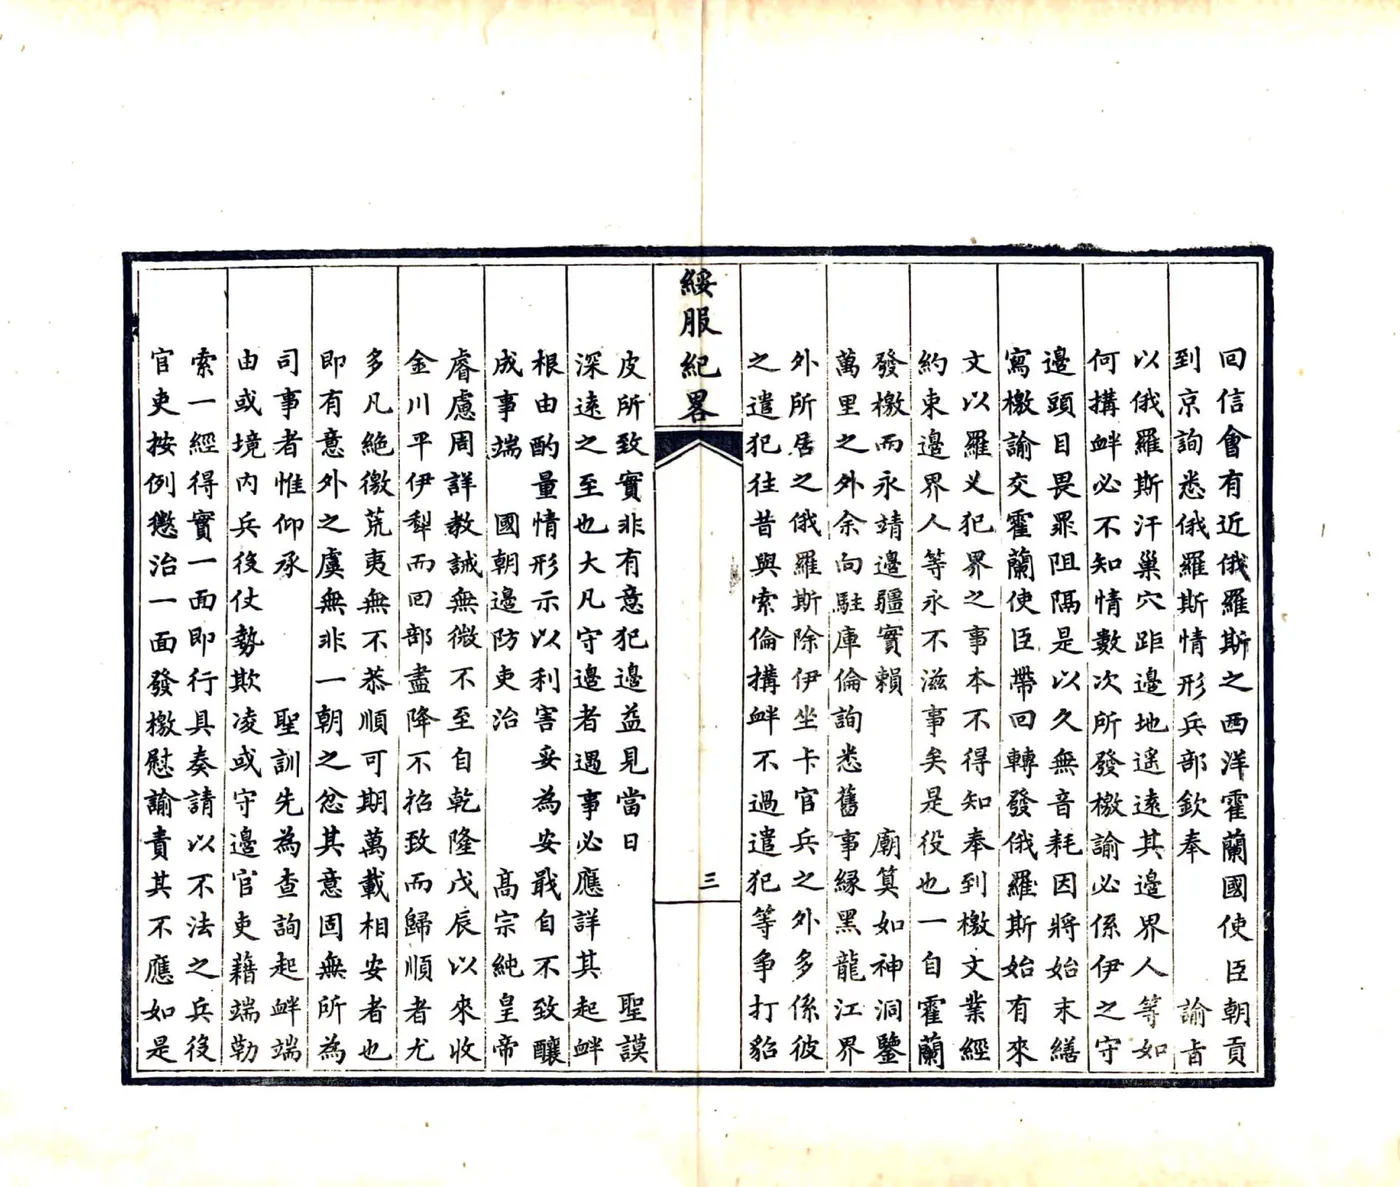 回信會有近俄羅斯之西洋霍蘭國使臣朝貢
到京詢悉俄羅斯情形兵部欽奉　諭旨
以俄羅斯汗巢穴距邊地遙遠其邊界人等如
何搆衅必不知情數次所發檄諭必係伊之守
邊頭目畏罪阻隔是以久無音耗因將始末繕
寫檄諭交霍蘭使臣帶回轉發俄羅斯始有來
文以羅义犯界之事本不得知奉到檄文業經
約束邊界人等永不滋事矣是役也一自霍蘭
發檄而永靖邊疆實賴　廟算如神洞鑒
萬里之外余向駐庫倫詢悉舊事緣黑龍江界
外所居之俄羅斯除伊坐卡官兵之外多係彼
之遣犯往昔與索倫搆衅不過遣犯等争打貂
綏服紀畧
三
皮所致實非有意犯邊益見當日　聖謨
深遠之至也大凡守邊者遇事必應詳其起衅
根由酌量情形示以利害妥為安戢自不致釀
成事端　國朝邊防吏治　髙宗純皇帝
睿慮周詳教誡無微不至自乾隆戊辰以來收
金川平伊犁而回部盡降不招致而歸順者尤
多凡絕徼荒夷無不恭順可期萬載相安者也
即有意外之虞無非一朝之忿其意固無所為
司事者惟仰承　聖訓先為查詢起衅端
由或境內兵役仗勢欺凌或守邊官吏藉端勒
索一經得實一面即行具奏請以不法之兵役
官吏按例懲治一面發檄慰諭責其不應如是